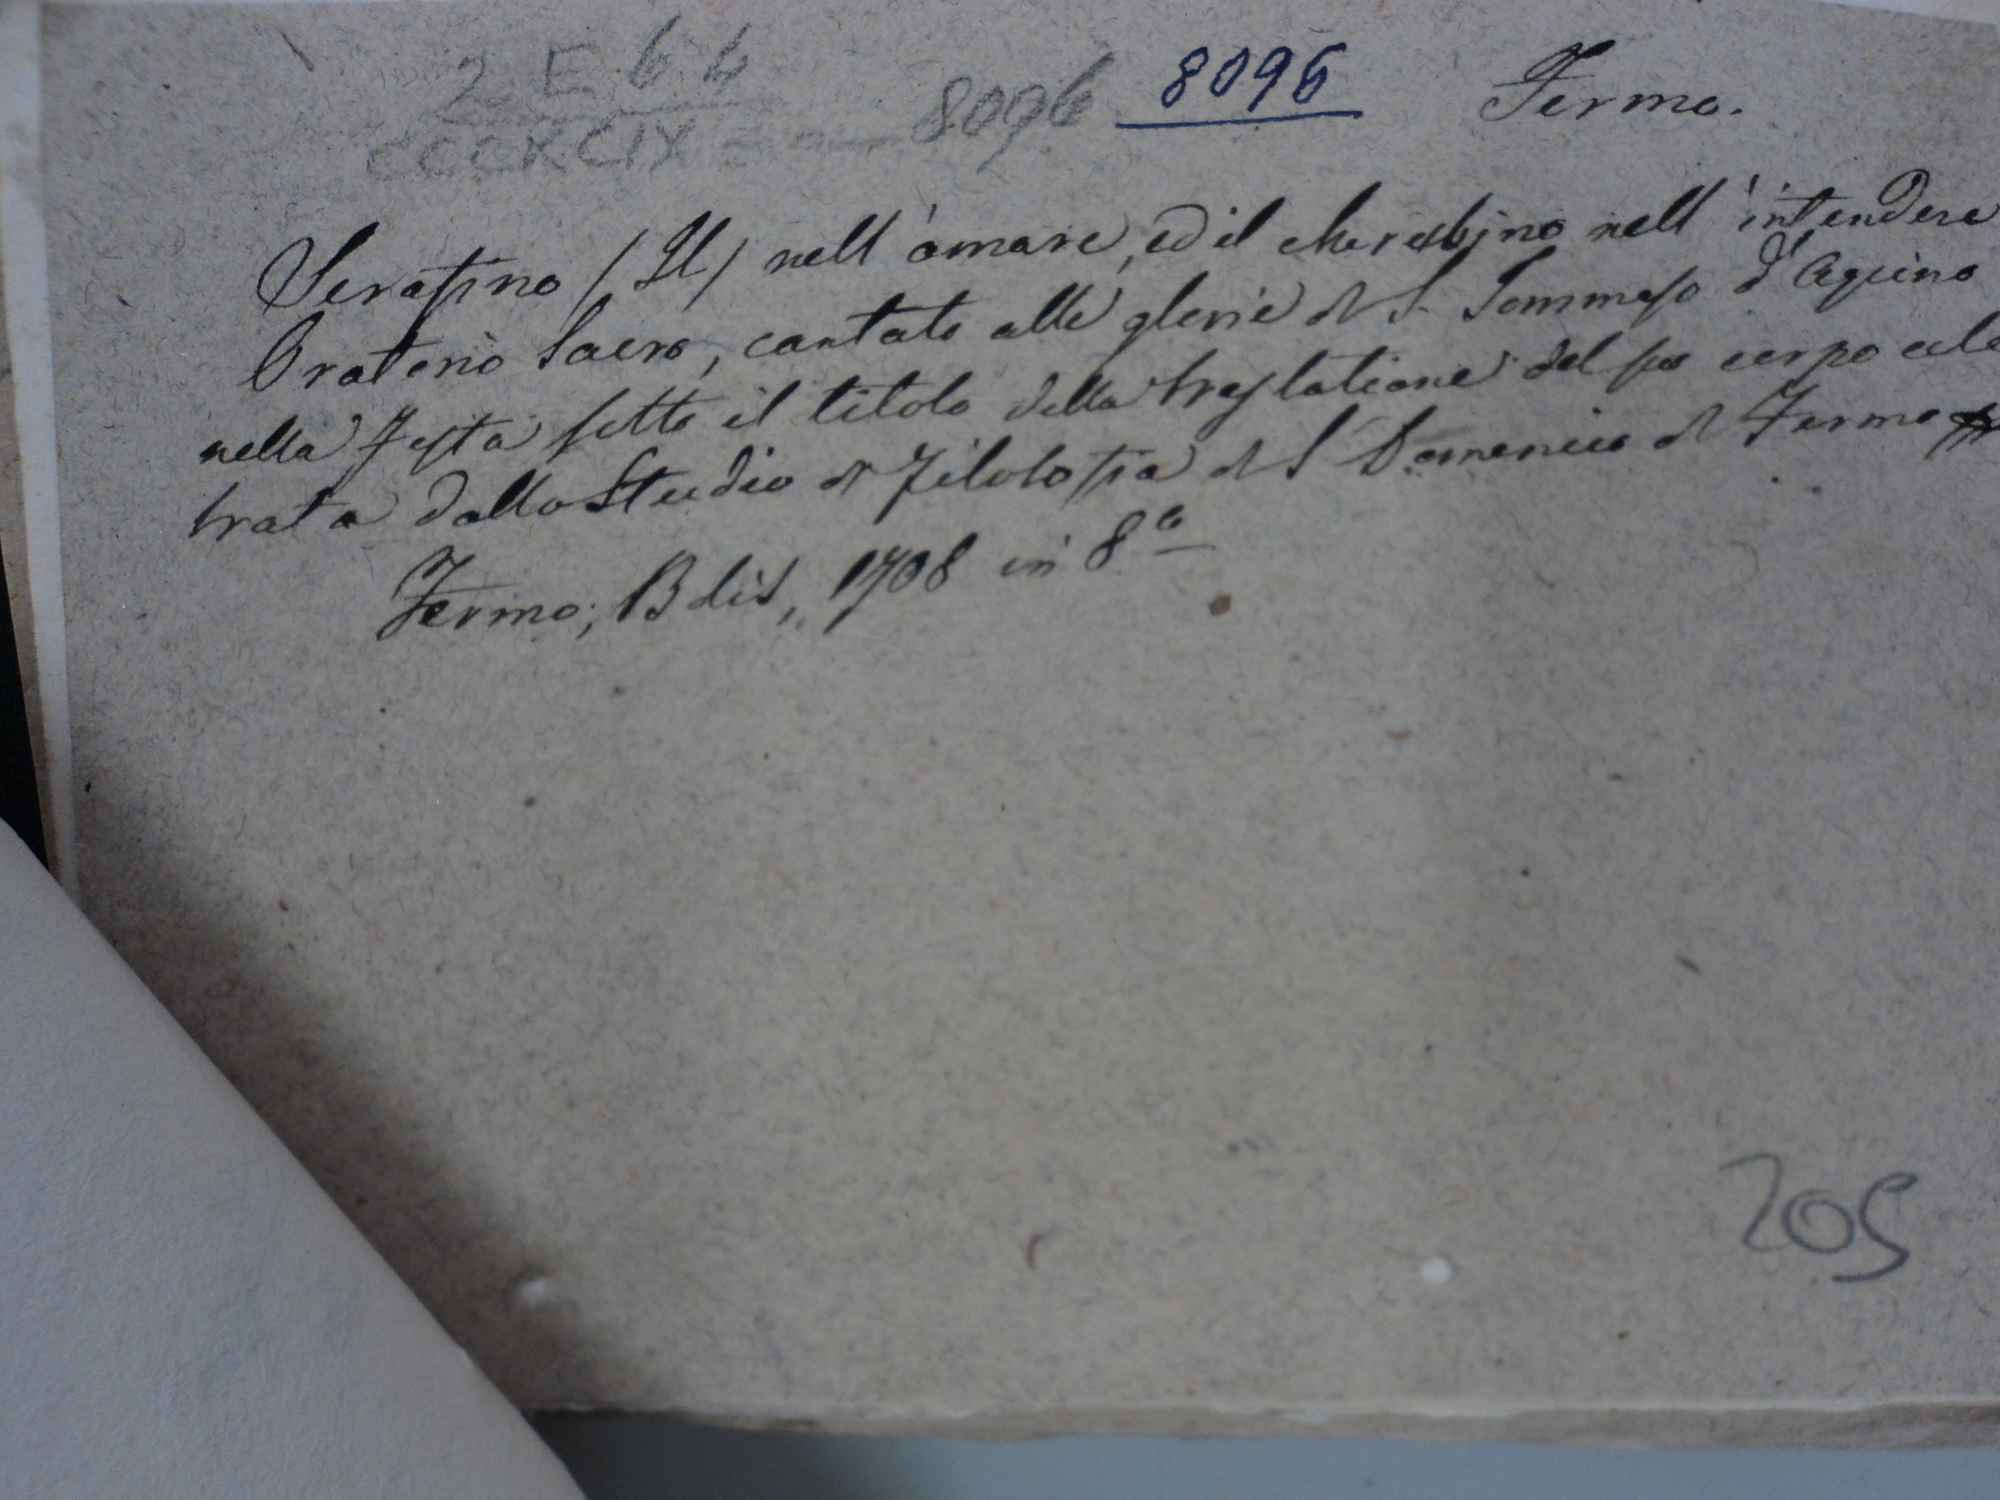 2 E 6 6
CCCXCIX 8096 8096 Fermo.
Serafino (Il) nell'amare, ed il cherubino nell'intendere
Oratorio Sacro, cantato alle glorie di S. Tommaso d'Aquino
nella festa sotto il titolo della traslatione del suo corpo cele
trata dallo Studio di Filosofia di S Domenico di Fermo
Fermo, Bolis, 1708 in 8º
205